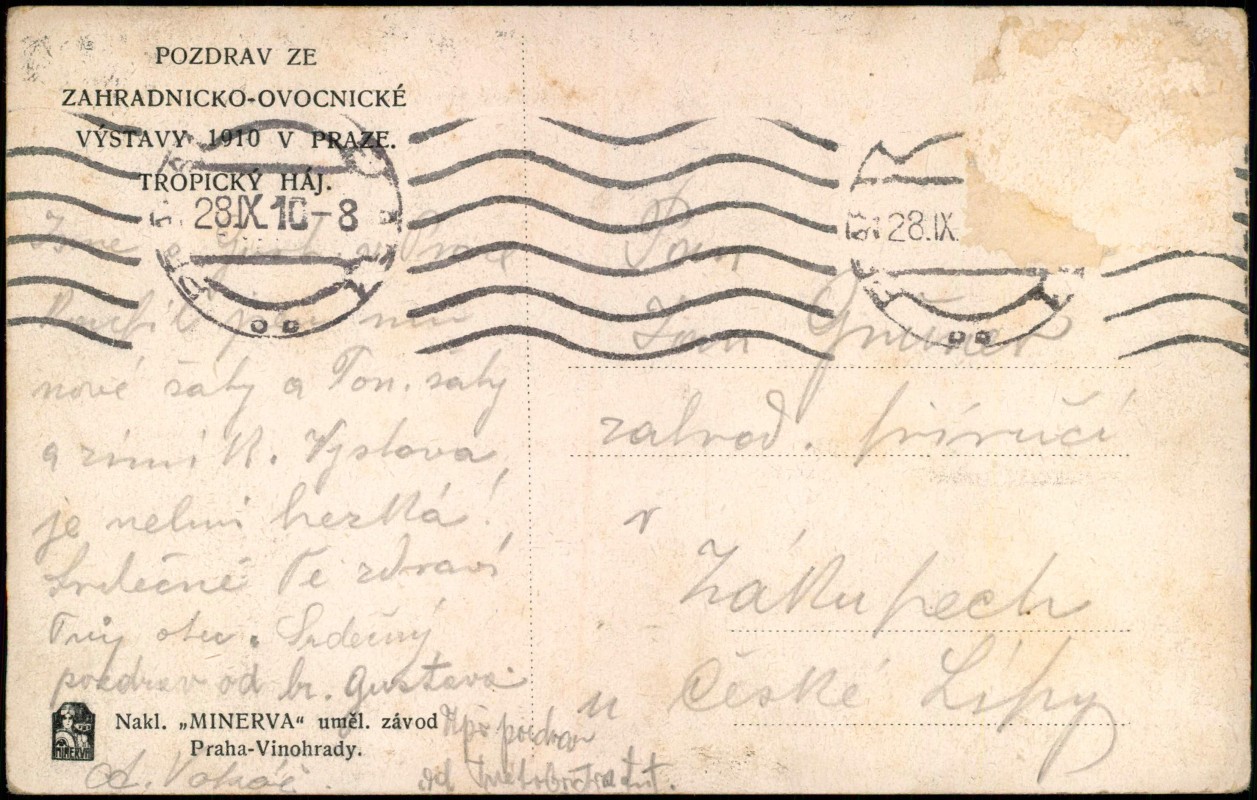 POZDRAV ZE
ZAHRADNICKO-OVOCNICKÉ
VÝSTAVY 1910 V PRAZE.
TROPICKÝ HÁJ.
28.IX.10-8
28.IX.
nové šaty a Ton. šaty
a zimní k. Výstava
je velmi hezká!
Srdečně Tě zdraví
Tvůj otec. Srdečný
pozdrav od br. Gustava
Nakl. „MINERVA" uměl. závod
Praha-Vinohrady.
MINERVA
pozdrav
od
Pan
Ivan
zahrad. příručí
v
Zákupech
u České Lípy